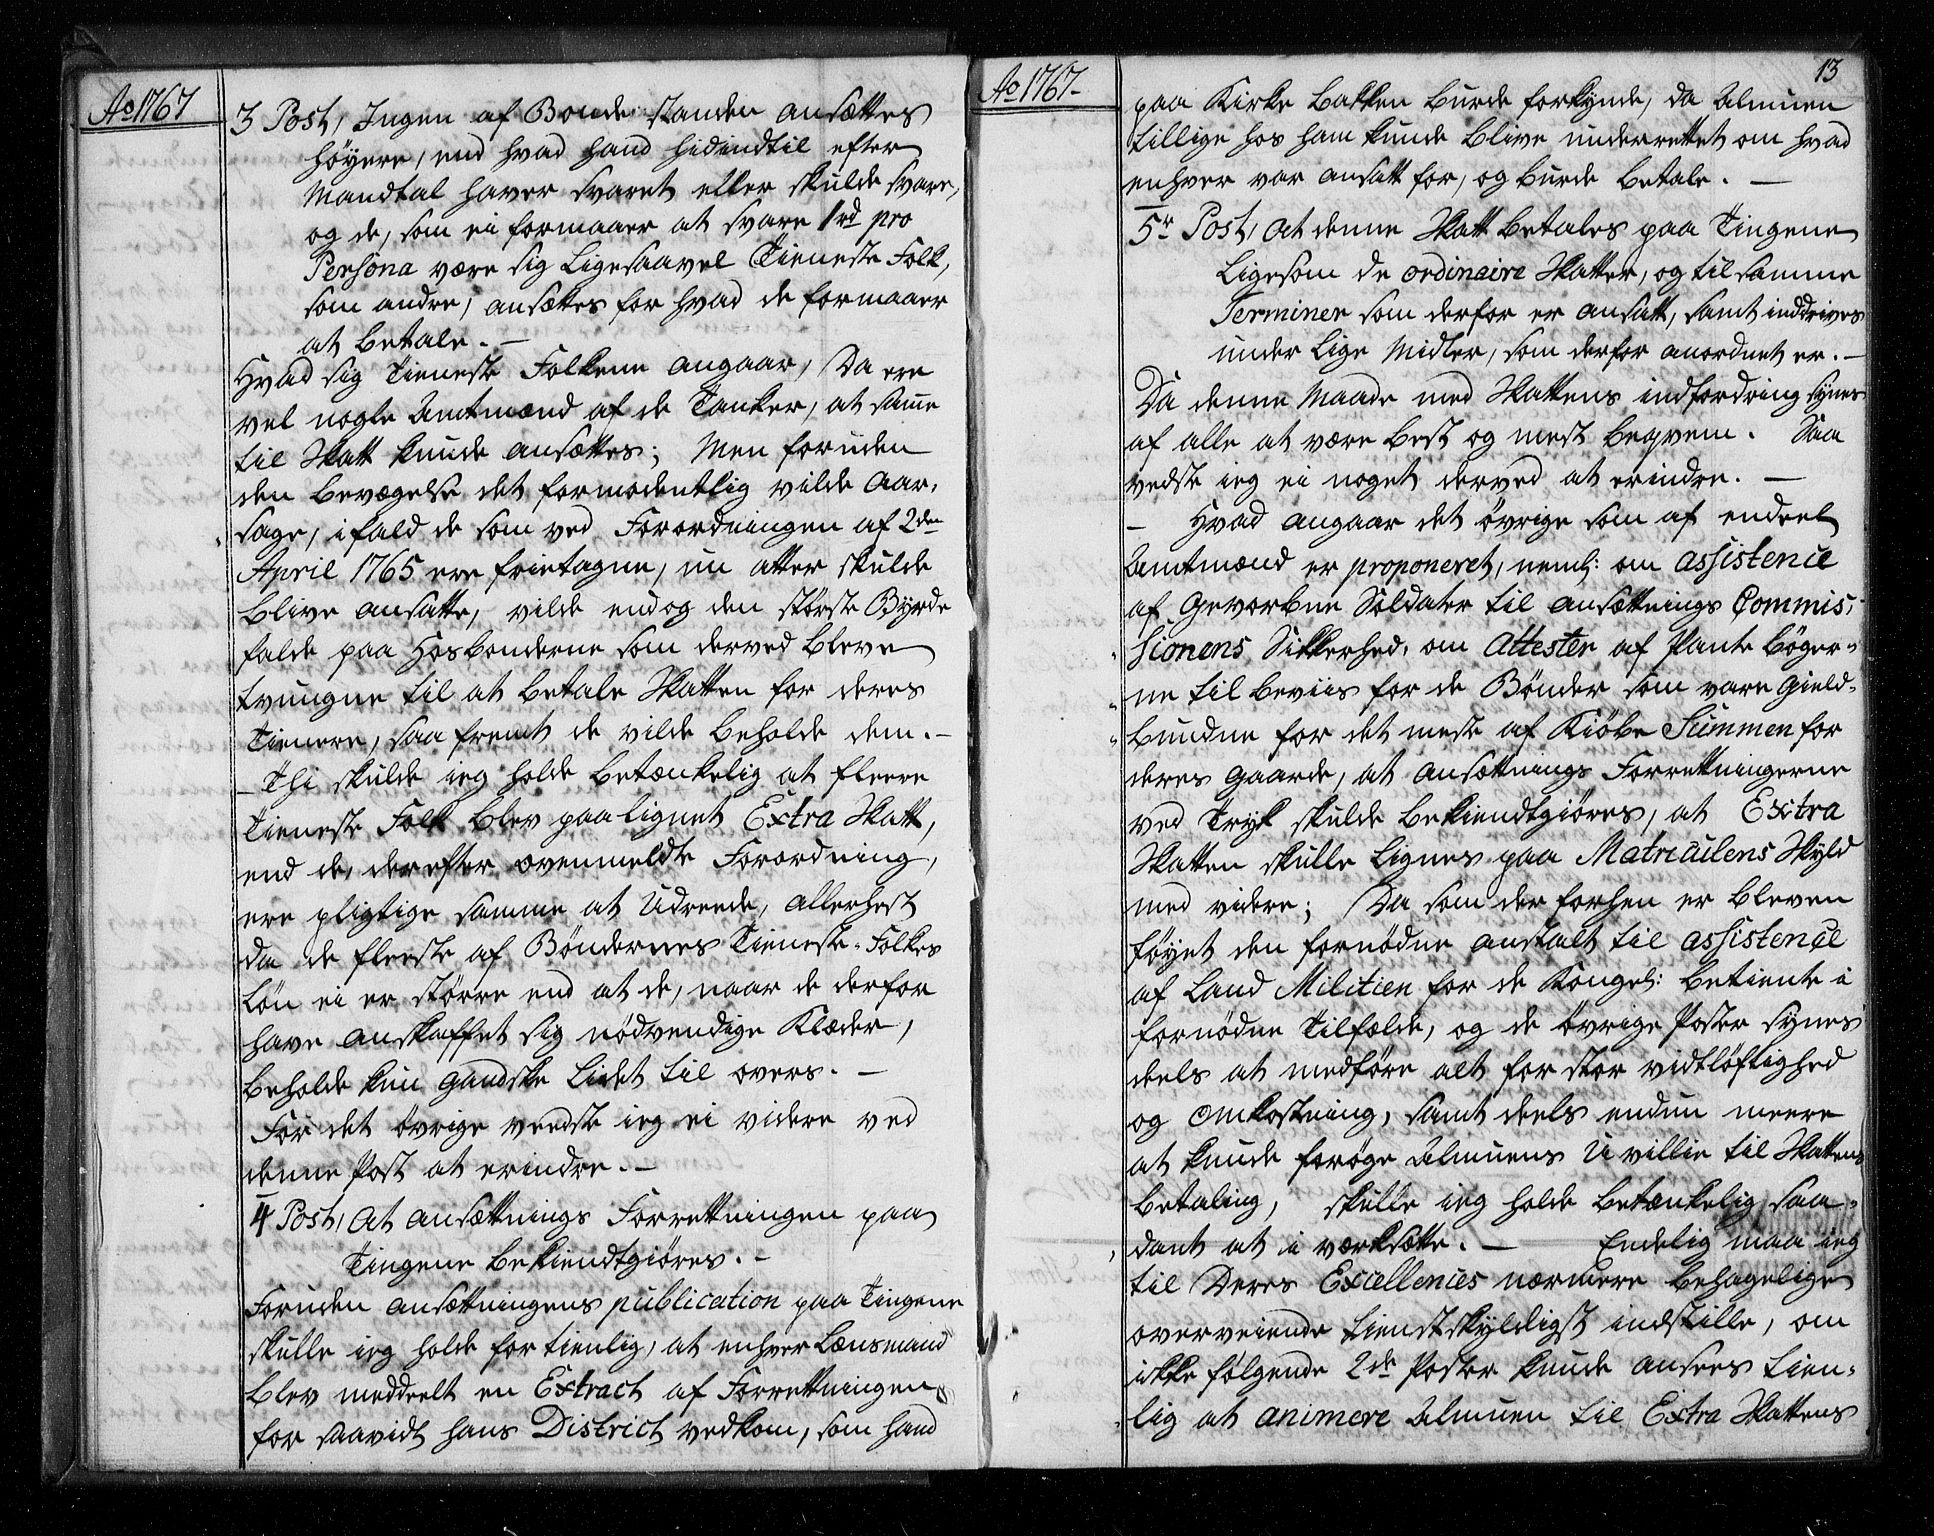 Ao 1767
3 Post, Ingen af Bonde standen ansættes
høyere, end hvad hand hidindtil efter
Mandtal haver svaret eller skulde svare,
og de, som ei formaaer at svare 1 rd pro
Persona være sig ligesaavel Tieneste Folk,
som andre, ansættes for hvad de formaaer
at betale. -
Hvad sig Tieneste Folkene angaar, Da ere
vel nogle Amtmænd af de Tanker, at same
til Skatt kunde ansættes; Men foruden
den bevægelse det formodentlig vilde aar-
sage, ifald de som ved Forordningen af 2den
April 1765 ere frietagne, nu atter skulde
blive ansatte, vilde endog den største Byrde
falde paa Hosbonderne som derved bleve
tvungne til at betale Skatten for deres
Tienere, saa fremt de vilde beholde dem. -
- Thi skulde ieg holde betænkelig at fleere
Tieneste Folk blev paalignet Extra Skatt,
end de, der efter ovenmeldte Forordning,
ere pligtige samme at Udreede, allerhest
da de fleeste af Bøndernes Tieneste-Folkes
Løn ei er større end at de, naar de derfor
have anskaffet sig nødvendige Klæder,
beholde kun gandske lidet til overs. -
For det øvrige veedste ieg ei videre ved
denne Post at erindre. -
4 Post, At ansættnings Forrettningen paa
Tingene bekiendtgiøres. -
Foruden ansættningens publication paa Tingene
skulle ieg holde for tienlig, at enhver Lænsmand
blev meddeelt en Extract af Forrettningen
for saavidt hans District vedkom, som hand
Ao 1767-
13
paa Kirke bakken burde forkynde, da Almuen
tillige hos ham kunde blive underrettet om hvad
enhver var ansatt for, og burde betale. -
5r Post, At denne Skatt betales paa Tingene
ligesom de ordinaire Skatter, og til samme
Terminer som derfor er ansatt, samt inddrives
under lige Midler, som derfor anordnet er. -
Da denne Maade med Skattens indfordring synes
af alle at være best og mest beqvem. Saa
vedste ieg ei noget derved at erindre. -
- Hvad angaar det øvrige som af endeel
Amtmænd er proponeret, neml: om assistence
af Gevorbne Soldater til ansættnings Commis-
sionens Sikkerhed, om Attester af Pante bøger-
ne til beviis for de Bønder som vare gield-
bundne for det meste af Kiøbe Summen for
deres gaarde, at ansættnings Forrettningerne
ved Tryk skulde bekiendtgiøres, at Extra
Skatten skulle lignes paa Matriculens Skyld
med videre; Da som der forhen er bleven
føyet den fornødne anstalt til assistence
af Land Militien for de Kongel: betiente i
fornødne Tilfælde, og de øvrige Poster synes
deels at medføre alt for stor vidtløftighed
og omkostning, samt deels endnu meere
at kunde forøge Almuens Uvillie til Skattens
betaling, skulle ieg holde betænkelig saa-
dant at i værksætte. - Endelig maa ieg
til Deres Excellences nærmere behagelige
overveiende tienstskyldigst indstille, om
ikke følgende 2de Poster kunde ansees tien-
lig at animere Almuen til Extra Skattens